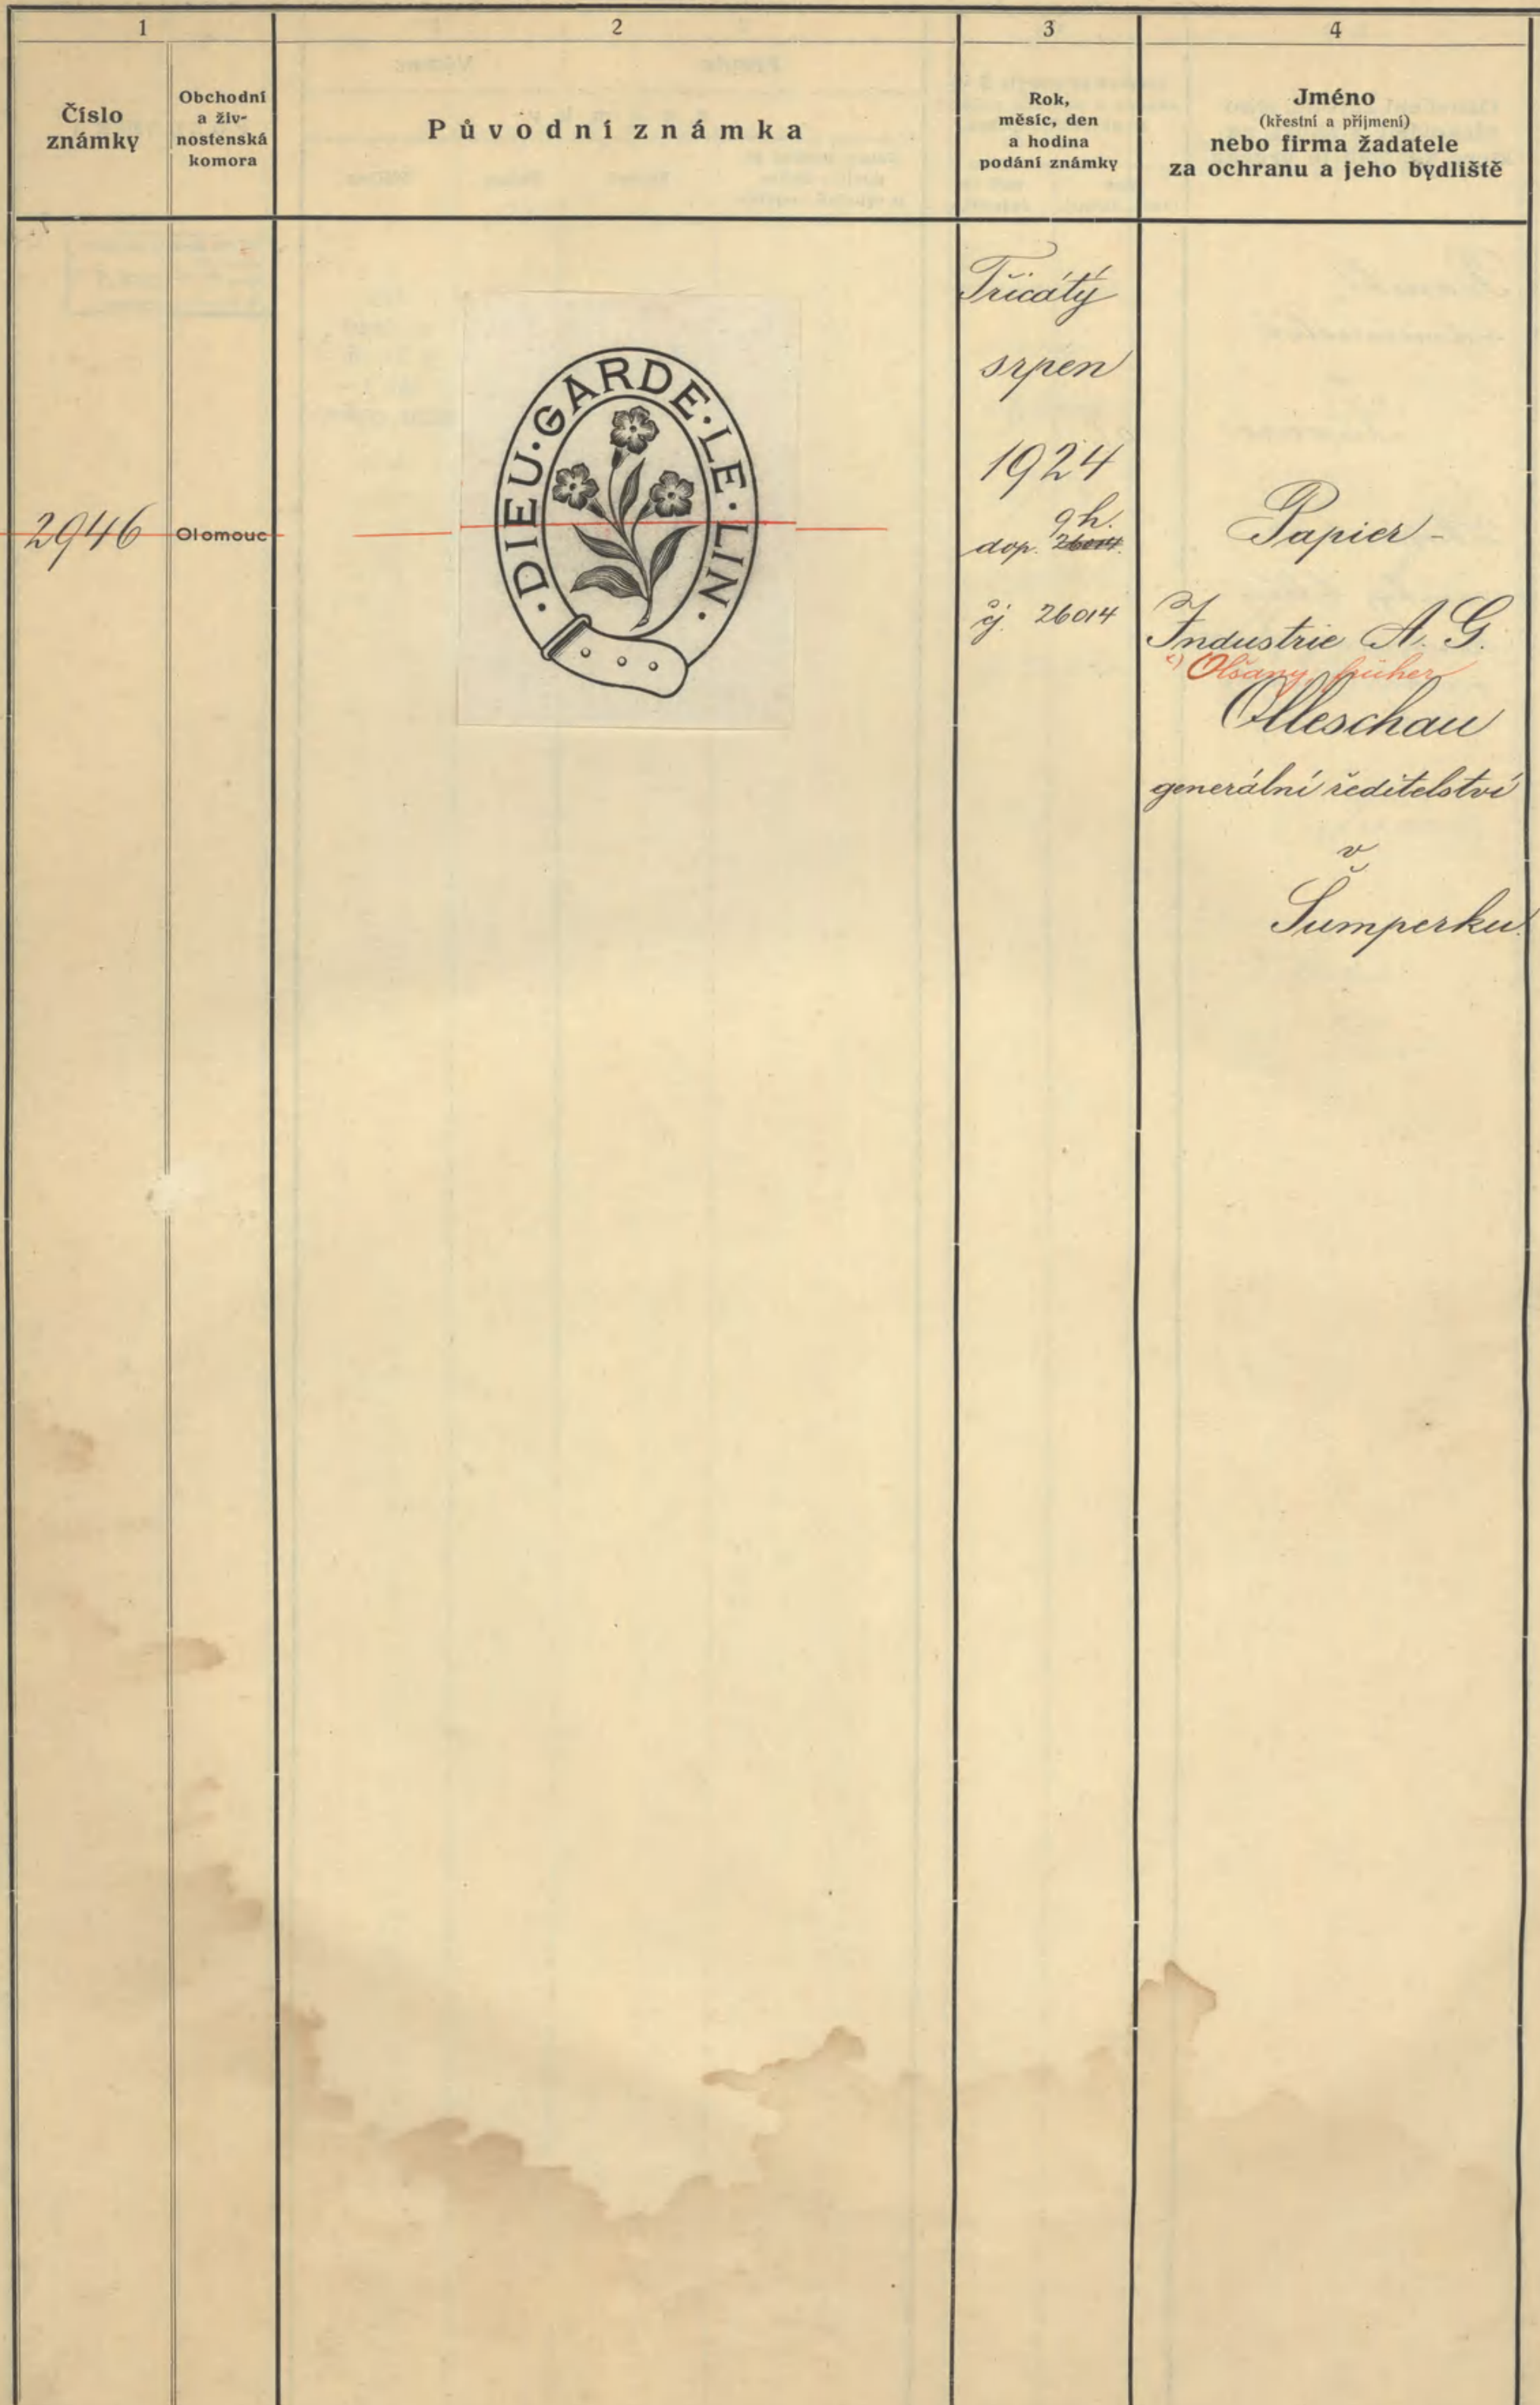 1
2
3
4
Číslo
známky
Obchodní
a živ-
nostenská
komora
Původní známka
Rok,
měsíc, den
a hodina
podání známky
Jméno
(křestní a příjmení)
nebo firma žadatele
za ochranu a jeho bydliště
2946
Olomouc
· DIEU · GARDE · LE · LIN ·
Třicátý
srpen
1924
9 h.
dop. 26014
čj. 26014
Papier-
Industrie A. G.
x) Olšany früher
Olleschau
generální ředitelství
v
Šumperku.